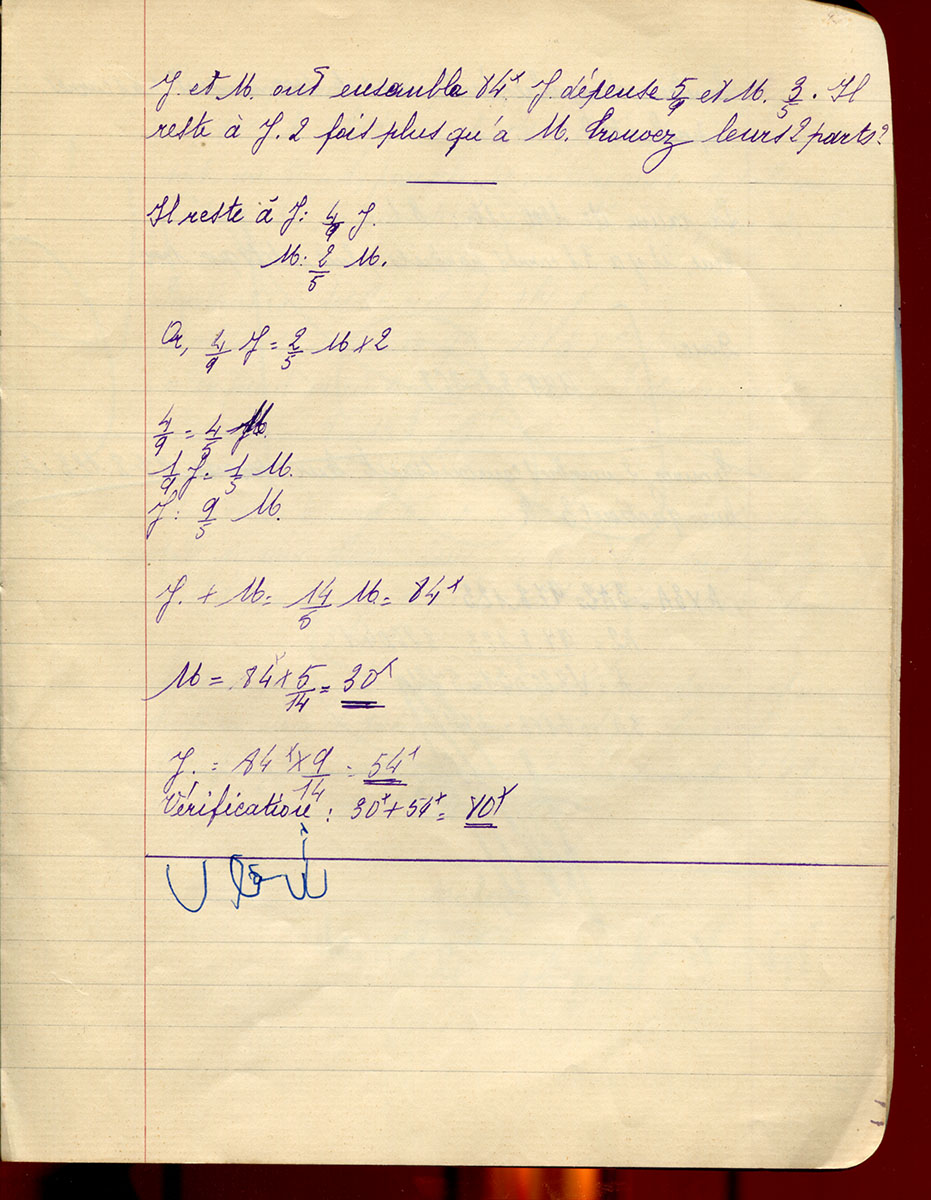 J et M. ont ensemble 84ᶠ. J. dépense 5/9 et M. 3/5. Il
reste à J. 2 fois plus qu'à M. Trouvez leurs 2 parts?
Il reste à J: 4/9 J.
M: 2/5 M.
Or, 4/9 J = 2/5 M x 2
4/9 = 4/5 M.
1/9 J = 1/5 M.
J: 9/5 M.
J. + M = 14/5 M = 84ᶠ
M = 84ᶠ x 5/14 = 30ᶠ
J. = 84ᶠ x 9/14 = 54ᶠ
Vérification: 30ᶠ + 54ᶠ = 80ᶠ